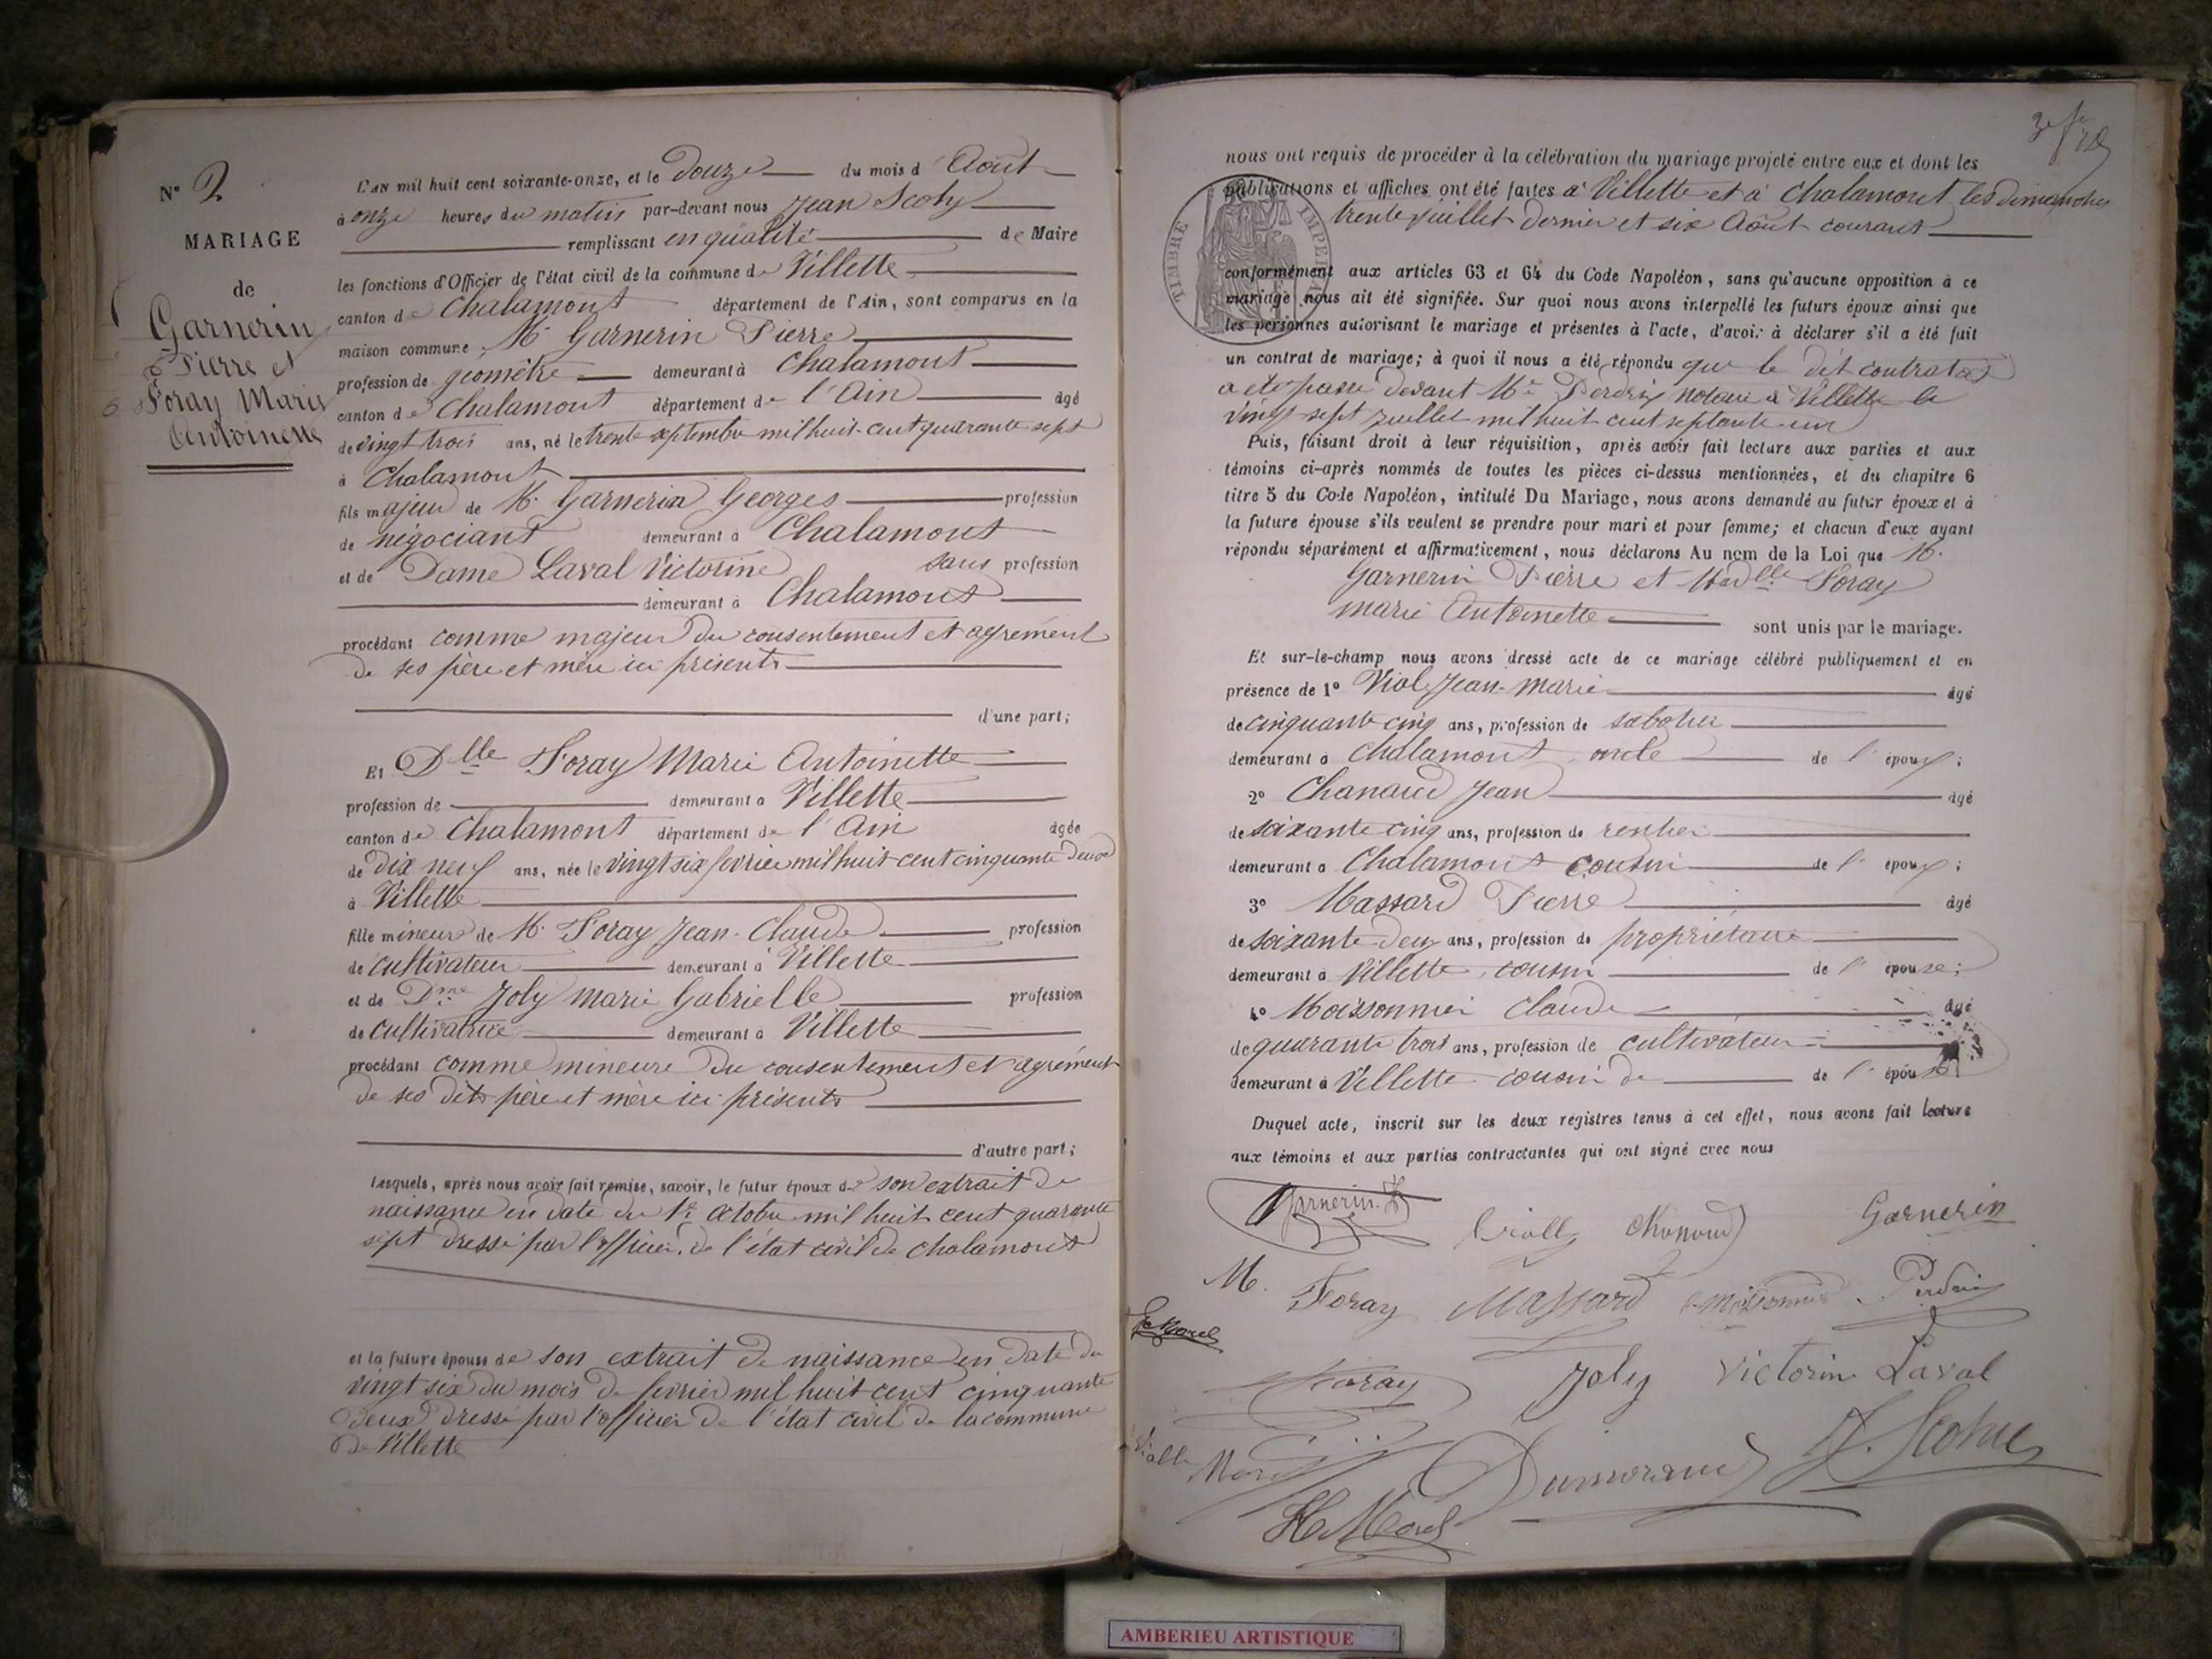 N° 2
MARIAGE
de
Garnerin
Pierre et
Foray Marie
Antoinette
L'AN mil huit cent soixante-onze, et le Douze du mois d'Août
à onze heures du matin par-devant nous Jean Scohy
remplissant en qualité de Maire
les fonctions d'Officier de l'état civil de la commune de Villette
canton de Chalamont département de l'Ain, sont comparus en la
maison commune M. Garnerin Pierre
profession de géomètre demeurant à Chalamont
canton de Chalamont département de l'Ain âgé
de vingt trois ans, né le trente septembre mil huit cent quarante sept
à Chalamont
fils majeur de M. Garnerin Georges profession
de négociant demeurant à Chalamont
et de Dame Laval Victorine sans profession
demeurant à Chalamont
procédant comme majeur du consentement et agrément
de ses père et mère ici présents
d'une part;
Et Dlle Foray Marie Antoinette
profession de demeurant à Villette
canton de Chalamont département de l'Ain âgée
de dix neuf ans, née le vingt six février mil huit cent cinquante deux
à Villette
fille mineure de M. Foray Jean-Claude profession
de cultivateur demeurant à Villette
et de Dme Joly Marie Gabrielle profession
de cultivatrice demeurant à Villette
procédant comme mineure du consentement et agrément
de ses dits père et mère ici présents
d'autre part;
Lesquels, après nous avoir fait remise, savoir, le futur époux de son extrait de
naissance en date du 1er octobre mil huit cent quarante
sept dressé par l'officier de l'état civil de Chalamont
et la future épouse de son extrait de naissance en date du
vingt six du mois de février mil huit cent cinquante
deux dressé par l'officier de l'état civil de la commune
de Villette
nous ont requis de procéder à la célébration du mariage projeté entre eux et dont les
publications et affiches ont été faites à Villette et à Chalamont les dimanches
trente juillet dernier et six Août courant
TIMBRE IMPERIAL
conformément aux articles 63 et 64 du Code Napoléon, sans qu'aucune opposition à ce
mariage nous ait été signifiée. Sur quoi nous avons interpellé les futurs époux ainsi que
les personnes autorisant le mariage et présentes à l'acte, d'avoir à déclarer s'il a été fait
un contrat de mariage; à quoi il nous a été répondu que le dit contrat
a été passé devant Me Perdrix notaire à Villette le
vingt sept juillet mil huit cent septante un
Puis, faisant droit à leur réquisition, après avoir fait lecture aux parties et aux
témoins ci-après nommés de toutes les pièces ci-dessus mentionnées, et du chapitre 6
titre 5 du Code Napoléon, intitulé Du Mariage, nous avons demandé au futur époux et à
la future épouse s'ils veulent se prendre pour mari et pour femme; et chacun d'eux ayant
répondu séparément et affirmativement, nous déclarons Au nom de la Loi que M.
Garnerin Pierre et Madlle Foray
marie Antoinette sont unis par le mariage.
Et sur-le-champ nous avons dressé acte de ce mariage célébré publiquement et en
présence de 1° Violy Jean-Marie âgé
de cinquante cinq ans, profession de sabotier
demeurant à Chalamont, oncle de l'époux;
2° Chanaud Jean âgé
de soixante cinq ans, profession de rentier
demeurant à Chalamont cousin de l'époux;
3° Massard Pierre âgé
de soixante deux ans, profession de propriétaire
demeurant à Villette, cousin de l'épouse;
4° Moissonnier Claude âgé
de quarante trois ans, profession de cultivateur
demeurant à Villette cousin de de l'épouse
Duquel acte, inscrit sur les deux registres tenus à cet effet, nous avons fait lecture
aux témoins et aux parties contractantes qui ont signé avec nous
Garnerin Violly Chanaud Garnerin
M. Foray Massard Perdrix
Morel
Foray Joly Victorin Laval
Morel Dumorand J. Scohy
H Morel
AMBERIEU ARTISTIQUE